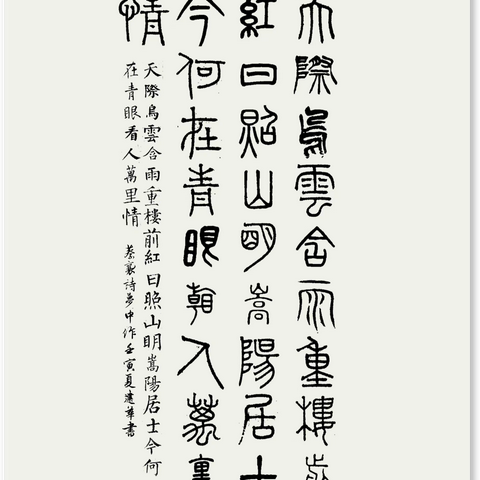 天際烏雲含雨重樓前
紅日照山明嵩陽居士
今何在青眼看人萬里
情
天際烏雲含雨重樓前紅日照山明嵩陽居士今何
在青眼看人萬里情 蔡襄詩夢中作壬寅夏建華書